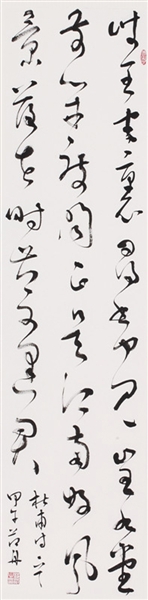 岐王宅里寻常见崔九堂
前几度闻正是江南好风
景落花时节又逢君
杜甫诗一首
甲午